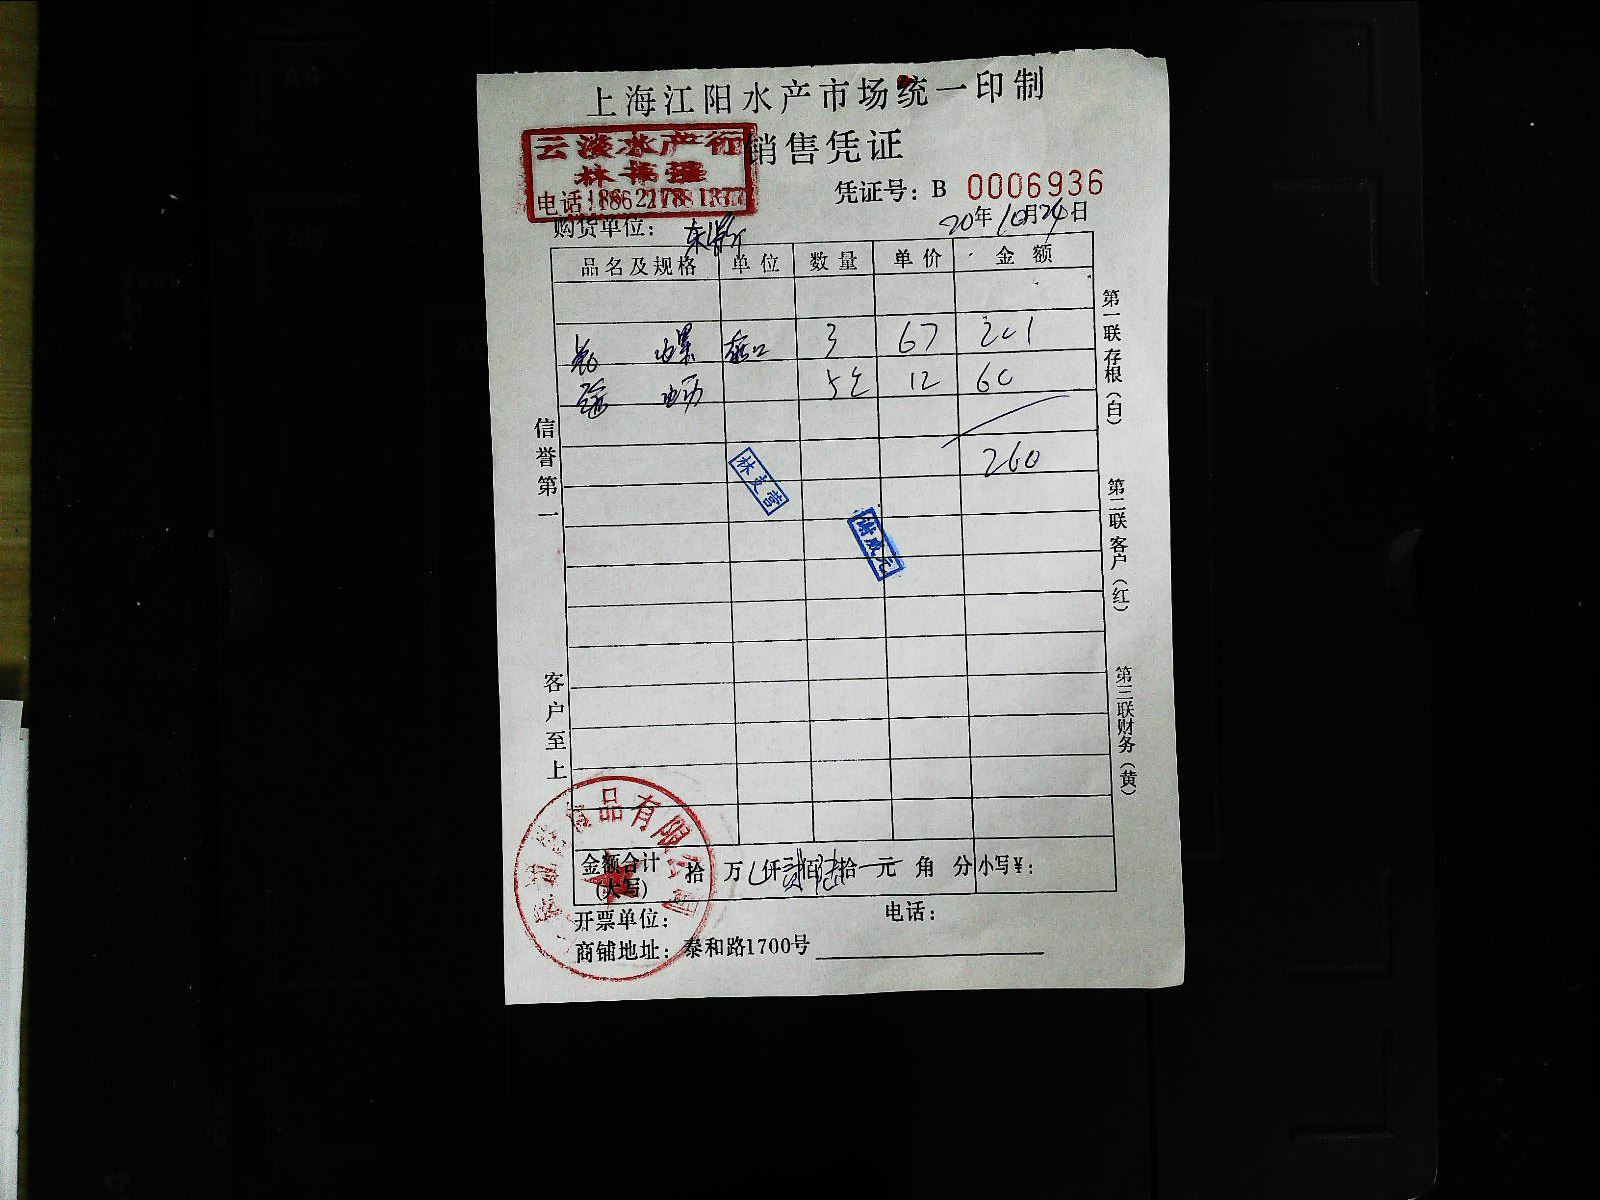 上海江阳水产市场统一印制
销售凭证
云淡水产行
电话:
凭证号: B 0006936
购货单位:
20年10月24日
品名及规格 单位 数量 单价 金额
螺 3 67 201
12 60
260
林文营
谢成元
信誉第一
客户至上
第一联 存根 (白)
第二联 客户 (红)
第三联 财务 (黄)
食品有限公司
金额合计 (大写) 拾 万 仟 贰佰 陆拾 元 角 分 小写¥:
开票单位: 电话:
商铺地址: 泰和路1700号